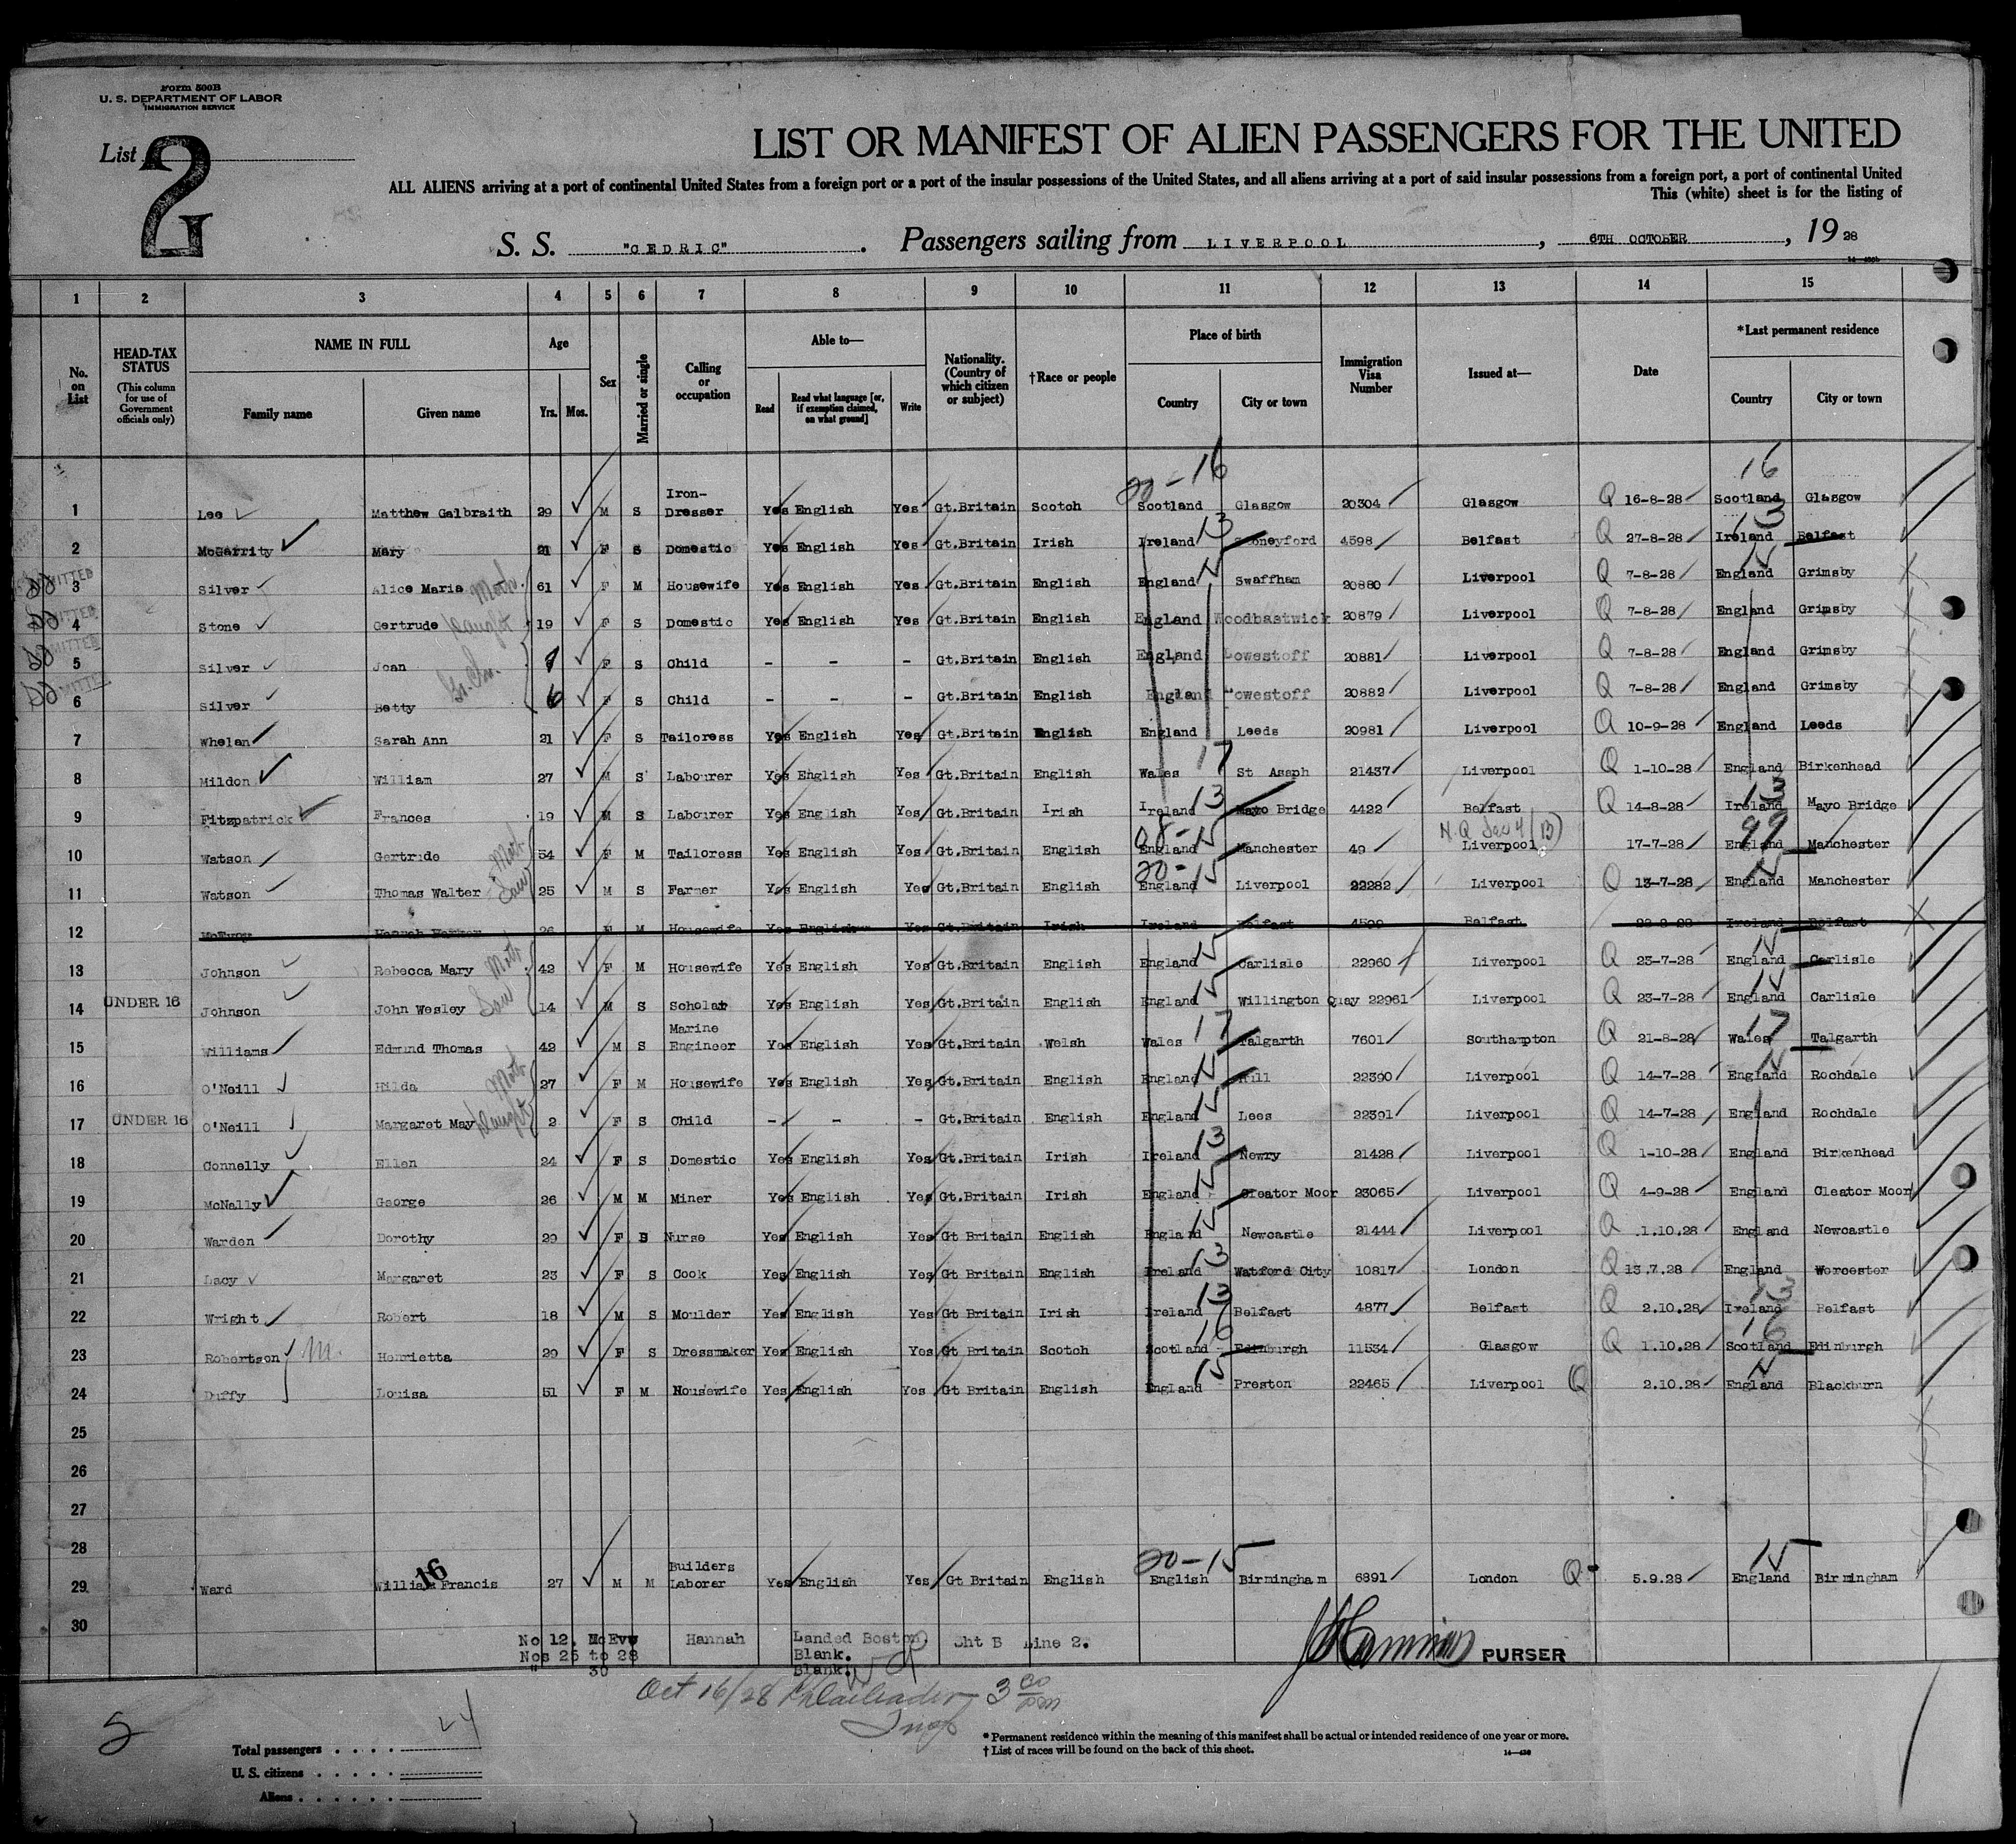 Form 500B
U. S. DEPARTMENT OF LABOR
IMMIGRATION SERVICE
List 2
LIST OR MANIFEST OF ALIEN PASSENGERS FOR THE UNITED
ALL ALIENS arriving at a port of continental United States from a foreign port or a port of the insular possessions of the United States, and all aliens arriving at a port of said insular possessions from a foreign port, a port of continental United
This (white) sheet is for the listing of
S. S. "CEDRIC" . Passengers sailing from LIVERPOOL , 6TH OCTOBER , 19 28
1 2 3 4 5 6 7 8 9 10 11 12 13 14 15
No. on List
HEAD-TAX STATUS (This column for use of Government officials only)
NAME IN FULL Family name Given name
Age Yrs. Mos.
Sex
Married or single
Calling or occupation
Able to— Read Read what language [or, if exemption claimed, on what ground] Write
Nationality. (Country of which citizen or subject)
†Race or people
Place of birth Country City or town
Immigration Visa Number
Issued at—
Date
*Last permanent residence Country City or town
20-16 16
1 Lee Matthew Galbraith 29 M S Iron-Dresser Yes English Yes Gt.Britain Scotch Scotland Glasgow 20304 Glasgow Q 16-8-28 Scotland Glasgow
2 McGarrity Mary 21 F S Domestic Yes English Yes Gt.Britain Irish Ireland 13 Stoneyford 4598 Belfast Q 27-8-28 Ireland 13 Belfast
3 Silver Alice Maria 61 F M Housewife Yes English Yes Gt.Britain English England Swaffham 20880 Liverpool Q 7-8-28 England Grimsby
4 Stone Gertrude 19 F S Domestic Yes English Yes Gt.Britain English England Woodbastwick 20879 Liverpool Q 7-8-28 England Grimsby
5 Silver Joan F S Child - - - Gt.Britain English England Lowestoff 20881 Liverpool Q 7-8-28 England Grimsby
6 Silver Betty 6 F S Child - - - Gt.Britain English England Lowestoff 20882 Liverpool Q 7-8-28 England Grimsby
7 Whelan Sarah Ann 21 F S Tailoress Yes English Yes Gt.Britain English England Leeds 20981 Liverpool Q 10-9-28 England Leeds
8 Mildon William 27 M S Labourer Yes English Yes Gt.Britain English Wales 17 St Asaph 21437 Liverpool Q 1-10-28 England Birkenhead
9 Fitzpatrick Frances 19 M S Labourer Yes English Yes Gt.Britain Irish Ireland 13 Mayo Bridge 4422 Belfast Q 14-8-28 Ireland 13 Mayo Bridge
10 Watson Gertrude 54 F M Tailoress Yes English Yes Gt.Britain English England Manchester 49 Liverpool 17-7-28 England 99 Manchester
11 Watson Thomas Walter 25 M S Farmer Yes English Yes Gt.Britain English England 20-15 Liverpool 22282 Liverpool Q 13-7-28 England Manchester
12 McEvoy Hannah 26 F M Housewife Yes English Yes Gt.Britain Irish Ireland Belfast Belfast Ireland Belfast
13 Johnson Rebecca Mary 42 F M Housewife Yes English Yes Gt.Britain English England 15 Carlisle 22960 Liverpool Q 23-7-28 England Carlisle
14 UNDER 16 Johnson John Wesley 14 M S Scholar Yes English Yes Gt.Britain English England 15 Willington Quay 22961 Liverpool Q 23-7-28 England Carlisle
15 Williams Edmund Thomas 42 M S Marine Engineer Yes English Yes Gt.Britain Welsh Wales 17 Talgarth 7601 Southampton Q 21-8-28 Wales 17 Talgarth
16 O'Neill Hilda 27 F M Housewife Yes English Yes Gt.Britain English England 15 Hull 22390 Liverpool Q 14-7-28 England Rochdale
17 UNDER 16 O'Neill Margaret May 2 F S Child - - - Gt.Britain English England 15 Lees 22391 Liverpool Q 14-7-28 England Rochdale
18 Connelly Ellen 24 F S Domestic Yes English Yes Gt.Britain Irish Ireland 13 Newry 21428 Liverpool Q 1-10-28 England Birkenhead
19 McNally George 26 M M Miner Yes English Yes Gt.Britain Irish England 15 Cleator Moor 23065 Liverpool Q 4-9-28 England Cleator Moor
20 Warden Dorothy 29 F S Nurse Yes English Yes Gt Britain English England 15 Newcastle 21444 Liverpool Q 1.10.28 England Newcastle
21 Lacy Margaret 23 F S Cook Yes English Yes Gt Britain English Ireland 13 Watford City 10817 London Q 13.7.28 England Worcester
22 Wright Robert 18 M S Moulder Yes English Yes Gt Britain Irish Ireland 13 Belfast 4877 Belfast Q 2.10.28 Ireland 13 Belfast
23 Robertson Henrietta 29 F S Dressmaker Yes English Yes Gt Britain Scotch Scotland 16 Edinburgh 11534 Glasgow Q 1.10.28 Scotland 16 Edinburgh
24 Duffy Louisa 51 F M Housewife Yes English Yes Gt Britain English England 15 Preston 22465 Liverpool Q 2.10.28 England Blackburn
25
26
27
28
29 Ward William Francis 16 27 M M Builders Laborer Yes English Yes Gt Britain English English 20-15 Birmingham 6891 London Q 5.9.28 England 15 Birmingham
30
No 12. McEvoy Hannah Landed Boston. Sht B Line 2.
Nos 25 to 28 Blank.
" 30 Blank.
PURSER
Oct 16/28 3 00 pm
Insp
Total passengers . . . . 24
U. S. citizens . . . . .
Aliens . . . . . .
* Permanent residence within the meaning of this manifest shall be actual or intended residence of one year or more.
† List of races will be found on the back of this sheet.